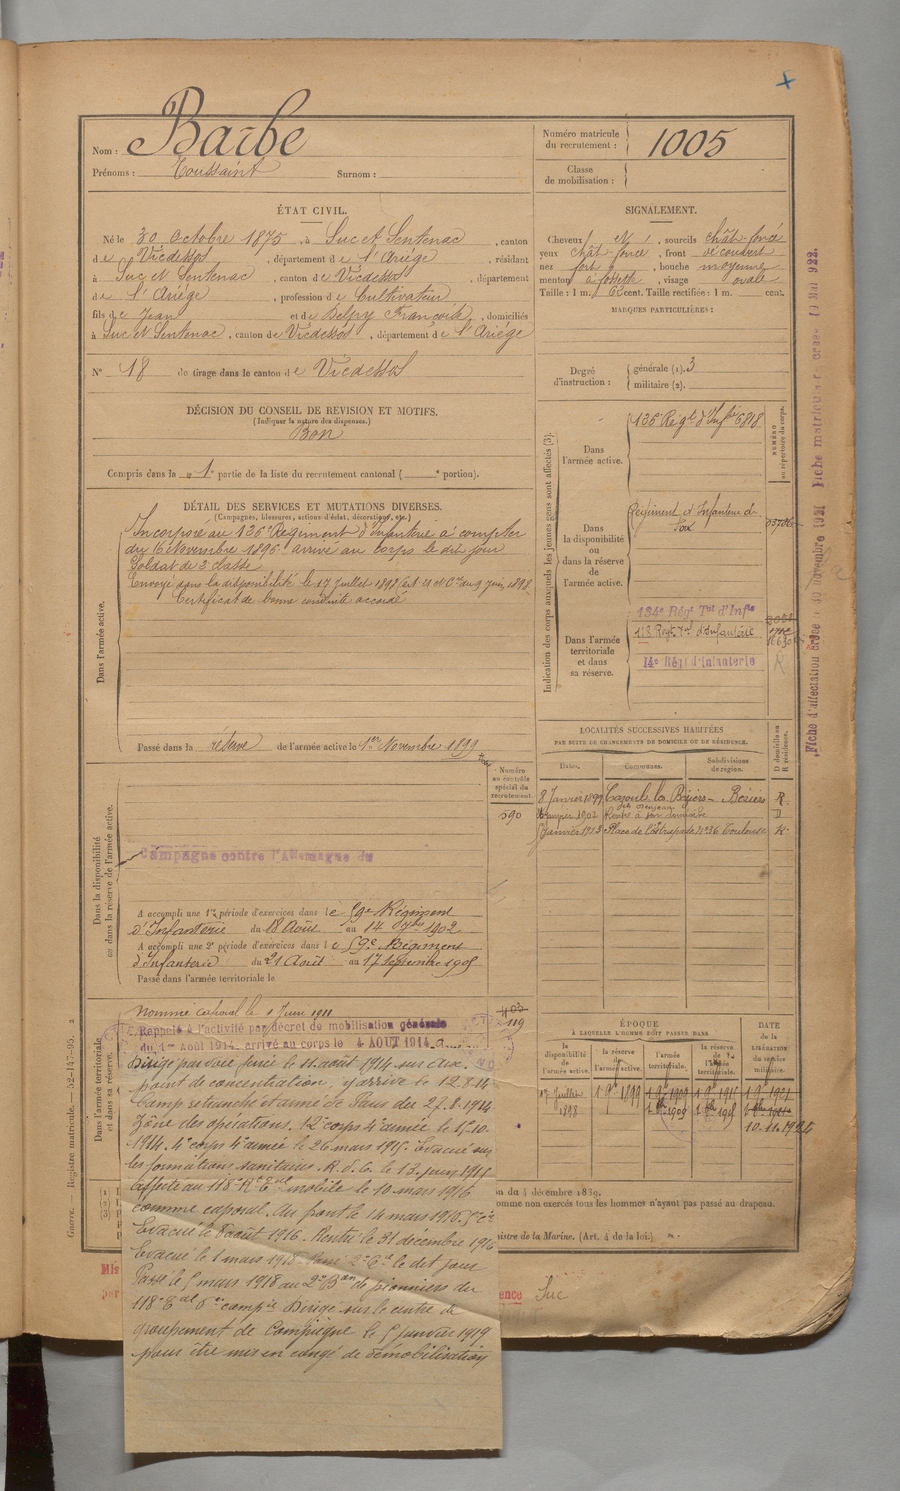 Nom : Barbe
Prénoms : Toussaint Surnom :
Numéro matricule du recrutement : 1005
Classe de mobilisation :
ÉTAT CIVIL.
Né le 30 Octobre 1875, à Suc et Sentenac, canton
de Vicdessos, département de l'Ariège, résidant
à Suc et Sentenac, canton de Vicdessos, département
de l'Ariège, profession de Cultivateur
fils de Jean et de Delpy Françoise, domiciliés
à Suc et Sentenac, canton de Vicdessos, département de l'Ariège
N° 18 de tirage dans le canton de Vicdessos
SIGNALEMENT.
Cheveux N, sourcils chât. foncé
yeux chât. foncé, front découvert
nez fort, bouche moyenne
menton à fossette, visage ovale
Taille : 1 m. 62 cent. Taille rectifiée : 1 m. cent.
MARQUES PARTICULIÈRES :
Degré d'instruction : générale (1). 3
militaire (2).
DÉCISION DU CONSEIL DE REVISION ET MOTIFS.
(Indiquer la nature des dispenses.)
Bon
Compris dans la 1e partie de la liste du recrutement cantonal ( e portion).
DÉTAIL DES SERVICES ET MUTATIONS DIVERSES.
(Campagnes, blessures, actions d'éclat, décorations, etc.)
Dans l'armée active.
Incorporé au 135e Régiment d'Infanterie à compter
du 16 Novembre 1896 arrivé au corps le dit jour
Soldat de 2e classe
Envoyé dans la disponibilité le 17 Juillet 1898
Certificat de bonne conduite accordé
Passé dans la réserve de l'armée active le 1er Novembre 1899
Indication des corps auxquels les jeunes gens sont affectés (3).
NUMÉRO au répertoire du corps.
Dans l'armée active. 135e Régt d'Infie 6818
Dans la disponibilité ou dans la réserve de l'armée active.
Régiment d'Infanterie de Foix
Dans l'armée territoriale et dans sa réserve.
134e Régt Tal d'Infie
118 Regt Tal d'Infanterie
14e Régt d'Infanterie
LOCALITÉS SUCCESSIVES HABITÉES
PAR SUITE DE CHANGEMENTS DE DOMICILE OU DE RÉSIDENCE.
Dates. Communes. Subdivisions de région. D domicile ou R résidence.
8 Janvier 1899 Cazouls les Béziers - Béziers R
1902 Rentré à son domicile D
Janvier 1913 Place de l'Estrapade N° 36 Toulouse R
Numéro au contrôle spécial du recrutement.
590
Dans la disponibilité ou dans la réserve de l'armée active.
Campagne contre l'Allemagne du
A accompli une 1re période d'exercices dans le 59e Régiment
d'Infanterie du 18 Août au 14 7bre 1902
A accompli une 2e période d'exercices dans le 59e Régiment
d'Infanterie du 21 Août au 17 Septembre 1905
Passé dans l'armée territoriale le
Dans l'armée territoriale et dans sa réserve.
Nommé caporal le 1 Juin 1911
403
119
Rappelé à l'activité par décret de mobilisation générale
du 1er Août 1914, arrivé au corps le 4 AOUT 1914
Dirigé par voie ferrée le 11 août 1914 sur
point de concentration, y arrive le 12.8.14
Camp retranché et armé de Paris du 27.8.1914
Zône des opérations. 12e corps 4e armée le 15.10.
1914. 4e corps 4e armée le 26 mars 1915. Evacué sur
les formations sanitaires. R. d. C. le 13 juin 1915
Affecté au 118e Rt Tal mobile le 10 mars 1916
comme caporal. Au front le 14 mars 1916.
Evacué le août 1916. Rentré le 31 décembre 1916
Evacué le 1 mars 1918 le dit jour
Passé le 5 mars 1918 au 2e Bon de pionniers du
118e Tal 6e compie Dirigé sur le centre de
groupement de Compiègne le 5 janvier 1919
pour être mis en congé de démobilisation
ÉPOQUE
À LAQUELLE L'HOMME DOIT PASSER DANS
la disponibilité de l'armée active. la réserve de l'armée active. l'armée territoriale. la réserve de l'armée territoriale.
DATE de la LIBÉRATION du service militaire.
17 Juillet 1898 1 9bre 1899 1 9bre 1909 1 9bre 1915 1 9bre 1921
10.11.19
on du 4 décembre 1889.
omme non exercés tous les hommes n'ayant pas passé au drapeau.
nistre de la Marine. (Art. 4 de la loi.)
ence Suc
Guerre. — Registre matricule. — 52-147-95.